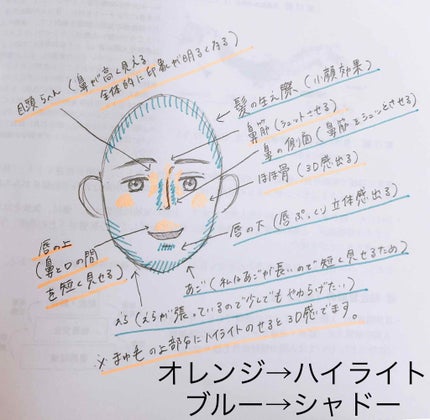 目頭らへん(鼻が高く見える
全体的に印象が明るくなる)
髪の生え際(小顔効果)
鼻筋(シュッとさせる)
鼻の側面(鼻筋をシュッとさせる)
ほほ骨(3D感出る)
唇の下(唇ぷっくり立体感出る)
唇の上
(鼻と口の間
を短く見せる)
あご(私はあごが長いので短く見せるため)
えら(えらが張っているので少しでもやわらげたい)
※まゆ毛の上部分にハイライトのせると3D感でます。
オレンジ→ハイライト
ブルー→シャドー